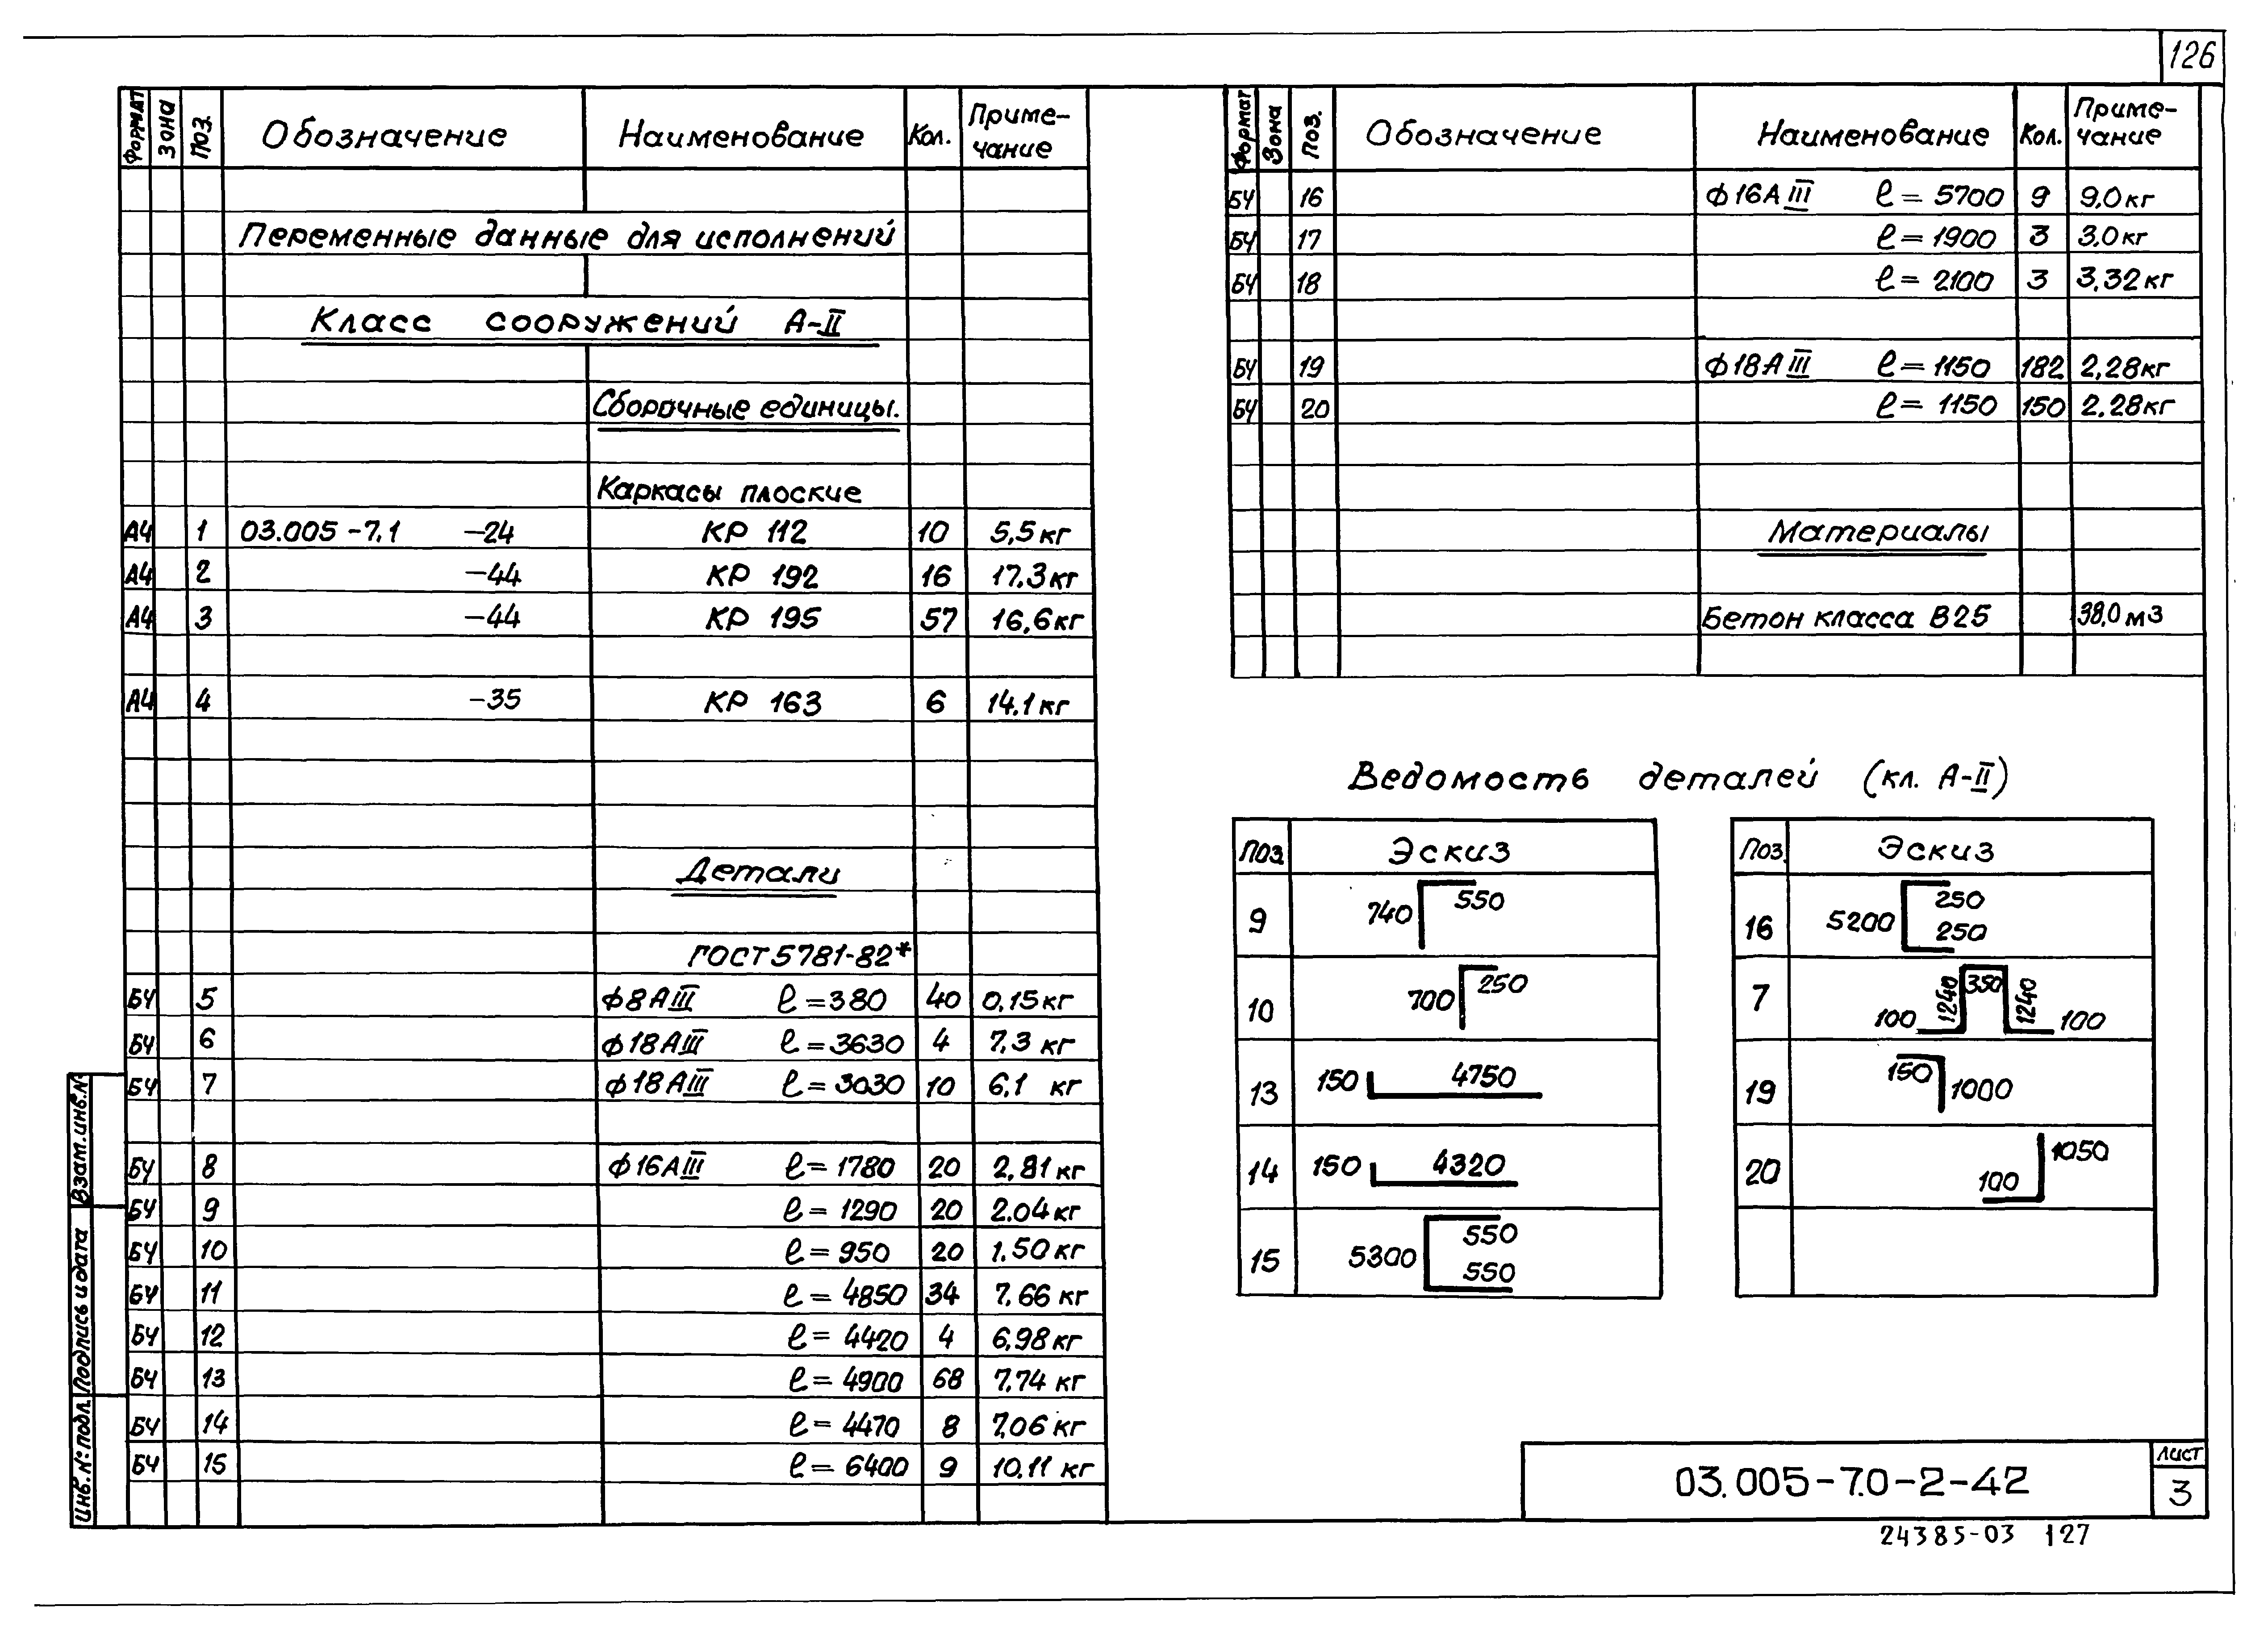 126
Формат Зона Поз. Обозначение Наименование Кол. Приме-
чание
Переменные данные для исполнений
Класс сооружений А-II
Сборочные единицы.
Каркасы плоские
А4 1 03.005-7.1 -24 КР 112 10 5,5 кг
А4 2 -44 КР 192 16 17.3 кг
А4 3 -44 КР 195 57 16,6 кг
А4 4 -35 КР 163 6 14.1 кг
Детали
ГОСТ 5781-82*
БЧ 5 Ф8АIII ℓ=380 40 0,15 кг
БЧ 6 Ф18АIII ℓ=3630 4 7.3 кг
БЧ 7 Ф18АIII ℓ=3030 10 6,1 кг
БЧ 8 Ф16АIII ℓ=1780 20 2,81 кг
БЧ 9 ℓ=1290 20 2.04 кг
БЧ 10 ℓ=950 20 1.50 кг
БЧ 11 ℓ=4850 34 7.66 кг
БЧ 12 ℓ=4420 4 6,98 кг
БЧ 13 ℓ=4900 68 7.74 кг
БЧ 14 ℓ=4470 8 7,06 кг
БЧ 15 ℓ=6400 9 10.11 кг
Взам.инв.№
Подпись и дата
Инв.№:подл.
Формат Зона Поз. Обозначение Наименование Кол. Приме-
чание
БЧ 16 Ф16АIII ℓ=5700 9 9,0 кг
БЧ 17 ℓ=1900 3 3.0 кг
БЧ 18 ℓ=2100 3 3,32 кг
БЧ 19 Ф18АIII ℓ=1150 182 2,28 кг
БЧ 20 ℓ=1150 150 2.28 кг
Материалы
Бетон класса В25 38,0 м3
Ведомость деталей (кл. А-II)
Поз. Эскиз
9 740 550
10 700 250
13 150 4750
14 150 4320
15 5300 550
550
Поз. Эскиз
16 5200 250
250
7 100 1240 350 1240 100
19 150 1000
20 100 1050
03.005-7.0-2-42
Лист
3
24385-03 127